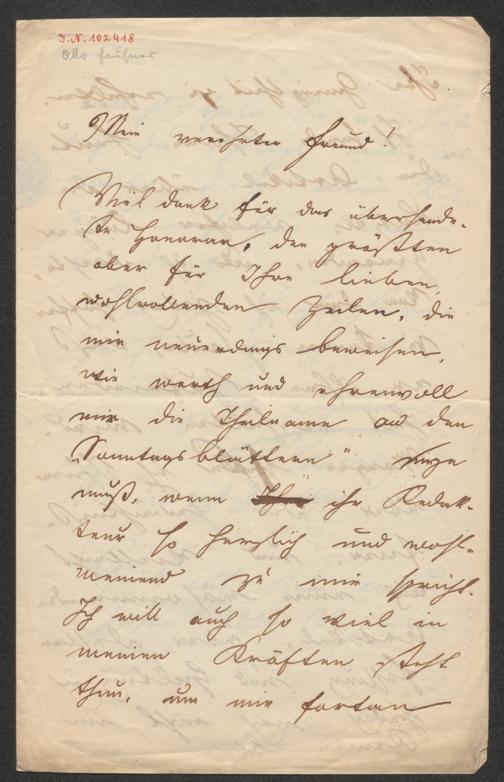 I.N. 102418
Otto Hausner
Mein verehrter Freund!
Viel dank für das übersende-
te Honorar, den größten
aber für Ihre lieben,
wohlwollenden Zeilen, die
mir neuerdings beweisen,
wie werth und ehrenvoll
mir die Theilname an den
"Sonntagsblättern"
muß, wenn ihr Redak-
teur so herzlich und wohl-
meinend zu mir spricht.
Ich will auch so viel in
meinen Kräften steht
thun, um mir fortan